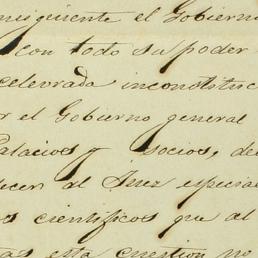 el Gobierno
con todo su poder
celevrada inconstituc
r el Gobierno general
Palacios y socios, de
decer al Juez especial
os cientificos que al
tas esta cuestion no